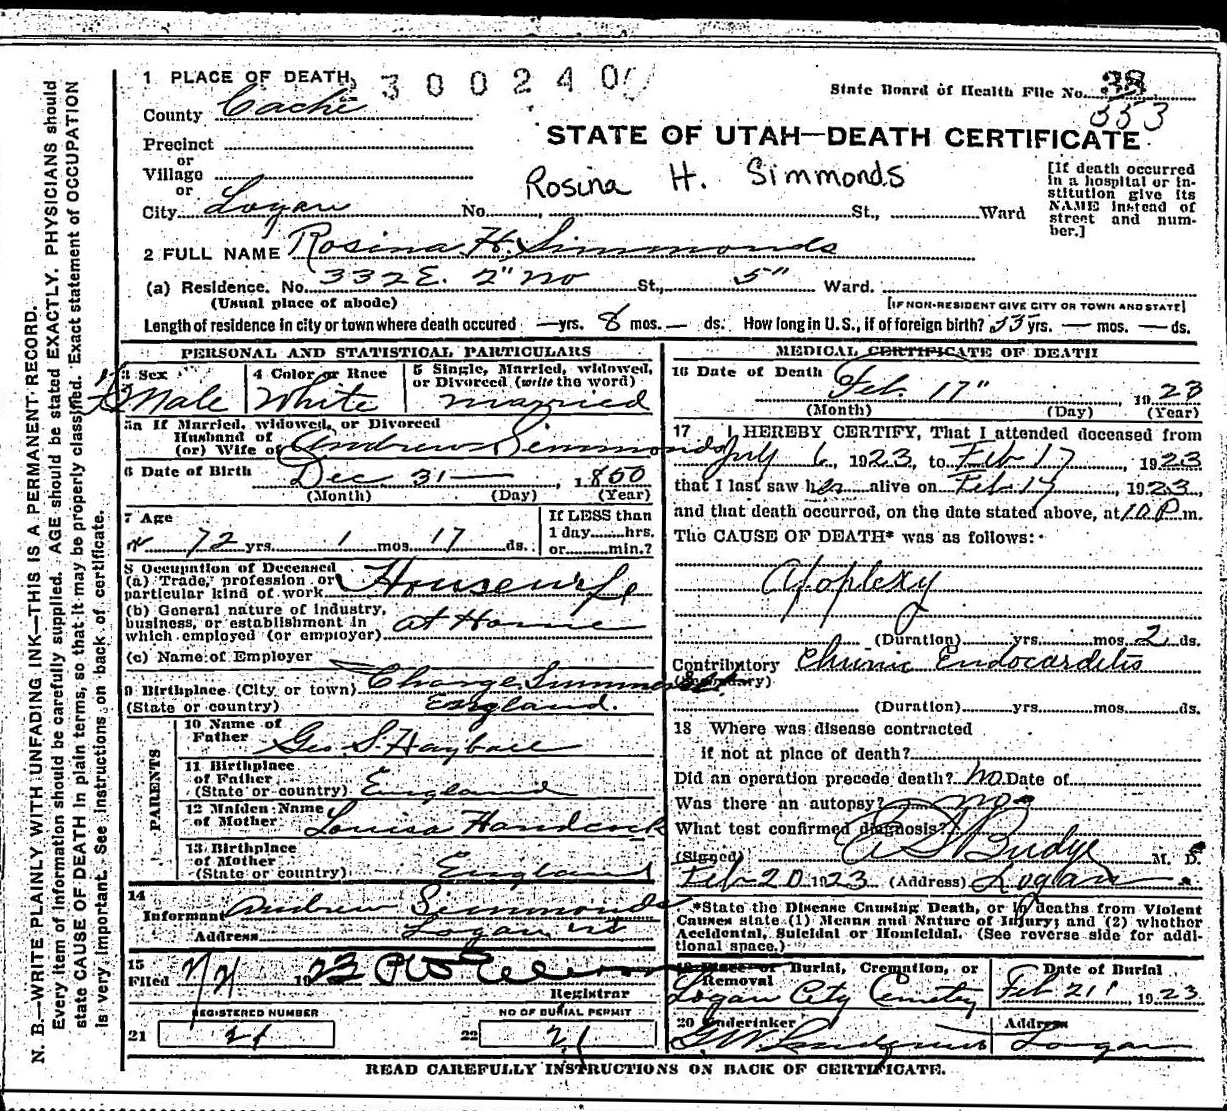 N. B.—WRITE PLAINLY WITH UNFADING INK—THIS IS A PERMANENT RECORD.
Every item of information should be carefully supplied. AGE should be stated EXACTLY. PHYSICIANS should
state CAUSE OF DEATH in plain terms, so that it may be properly classified. Exact statement of OCCUPATION
is very important. See instructions on back of certificate.
1 PLACE OF DEATH 2300240
State Board of Health File No. 38
353
County Cache
STATE OF UTAH—DEATH CERTIFICATE
Precinct
or
Village
or
Rosina H. Simmonds
[If death occurred
in a hospital or in-
stitution give its
NAME instead of
street and num-
ber.]
City Logan No. , St., Ward
2 FULL NAME Rosina H. Simmonds
(a) Residence. No. 332 E. 2" No St., 5" Ward.
(Usual place of abode) [IF NON-RESIDENT GIVE CITY OR TOWN AND STATE]
Length of residence in city or town where death occured — yrs. 8 mos. — ds. How long in U.S., if of foreign birth? 53 yrs. — mos. — ds.
PERSONAL AND STATISTICAL PARTICULARS
3 Sex 4 Color or Race 5 Single, Married, widowed,
or Divorced (write the word)
Male White married
5a If Married, widowed, or Divorced
Husband of
(or) Wife of Andrew Simmonds
6 Date of Birth Dec 31— , 1850
(Month) (Day) (Year)
7 Age If LESS than
72 yrs. 1 mos. 17 ds. 1 day hrs.
or min.?
8 Occupation of Deceased
(a) Trade, profession or
particular kind of work Housewife
(b) General nature of industry,
business, or establishment in
which employed (or employer) at Home
(c) Name of Employer
9 Birthplace (City or town)
(State or country) England.
PARENTS
10 Name of
Father Geo S. Hayball
11 Birthplace
of Father
(State or country) England
12 Maiden Name
of Mother Louisa Handcock
13 Birthplace
of Mother
(State or country) England
14
Informant Andrew Simmonds
Address Logan Ut
15
Filed 2/21 1923
Registrar
REGISTERED NUMBER NO OF BURIAL PERMIT
21 21 22 21
MEDICAL CERTIFICATE OF DEATH
16 Date of Death Feb. 17" , 1923
(Month) (Day) (Year)
17 I HEREBY CERTIFY, That I attended deceased from
July 6, 1923, to Feb 17, 1923
that I last saw her alive on Feb 17, 1923,
and that death occurred, on the date stated above, at 10 P m.
The CAUSE OF DEATH* was as follows:
Apoplexy
(Duration) yrs. mos. 2 ds.
Contributory Chronic Endocarditis
(Secondary)
(Duration) yrs. mos. ds.
18 Where was disease contracted
if not at place of death?
Did an operation precede death? No Date of
Was there an autopsy? no
What test confirmed diagnosis?
(Signed) Budge M. D.
Feb 20 1923 (Address) Logan
*State the Disease Causing Death, or in deaths from Violent
Causes state (1) Means and Nature of Injury; and (2) whether
Accidental, Suicidal or Homicidal. (See reverse side for addi-
tional space.)
19 Place of Burial, Cremation, or
Removal
Date of Burial
Logan City Cemetery Feb 21, 1923
20 Undertaker Address
Logan
READ CAREFULLY INSTRUCTIONS ON BACK OF CERTIFICATE.